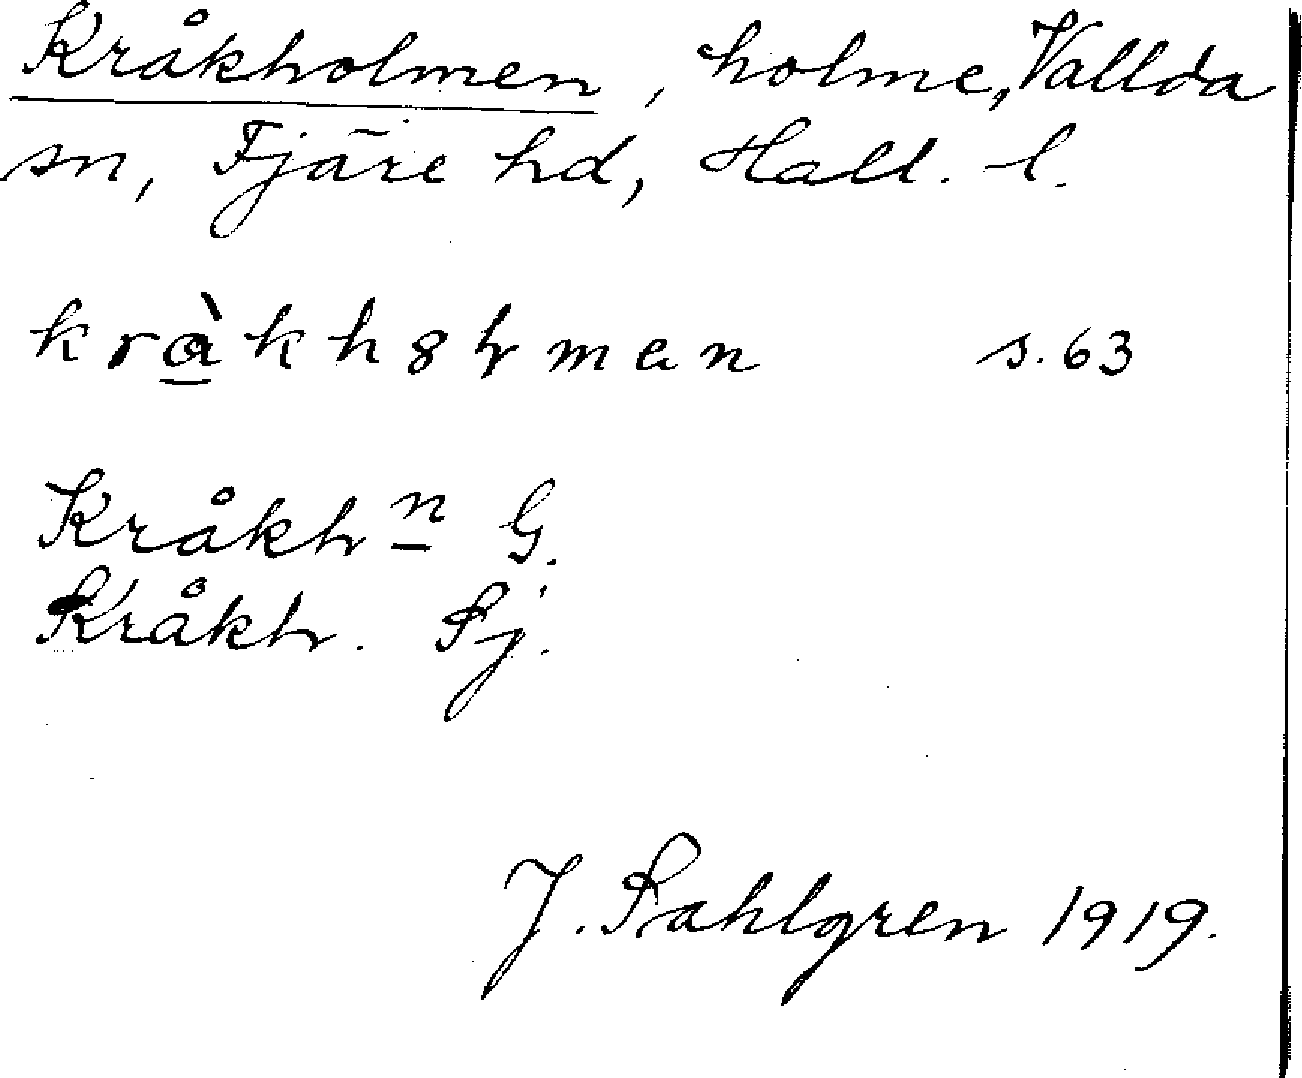 Kråkholmen, holme, Vallda
sn, Fjäre hd, Hall. l.
kràkh8ɫmen s. 63
Kråkhn G.
Kråkh. Sj.
J. Sahlgren 1919.